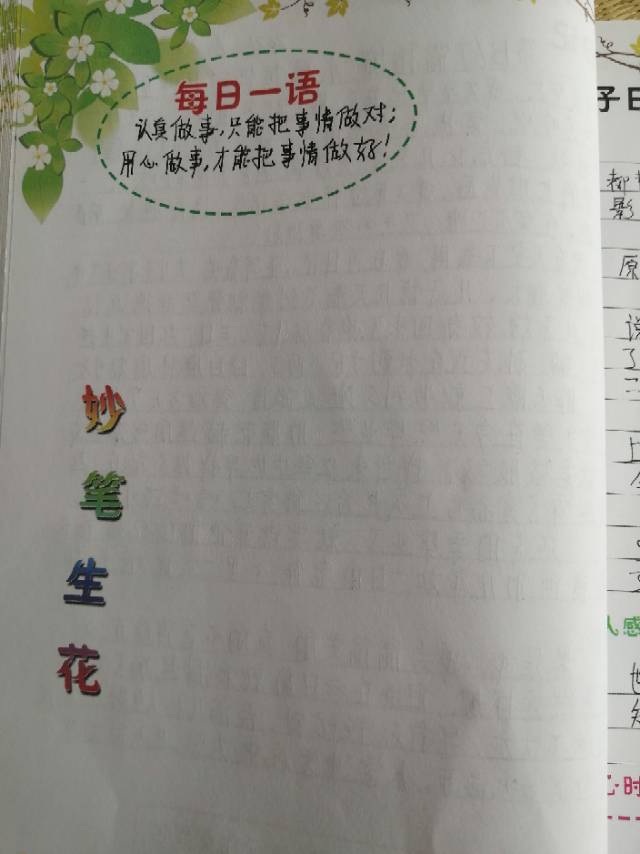 每日一语
认真做事,只能把事情做对;
用心做事,才能把事情做好!
妙
笔
生
花
子日
影
原
说
了
三
上
人感
心·时